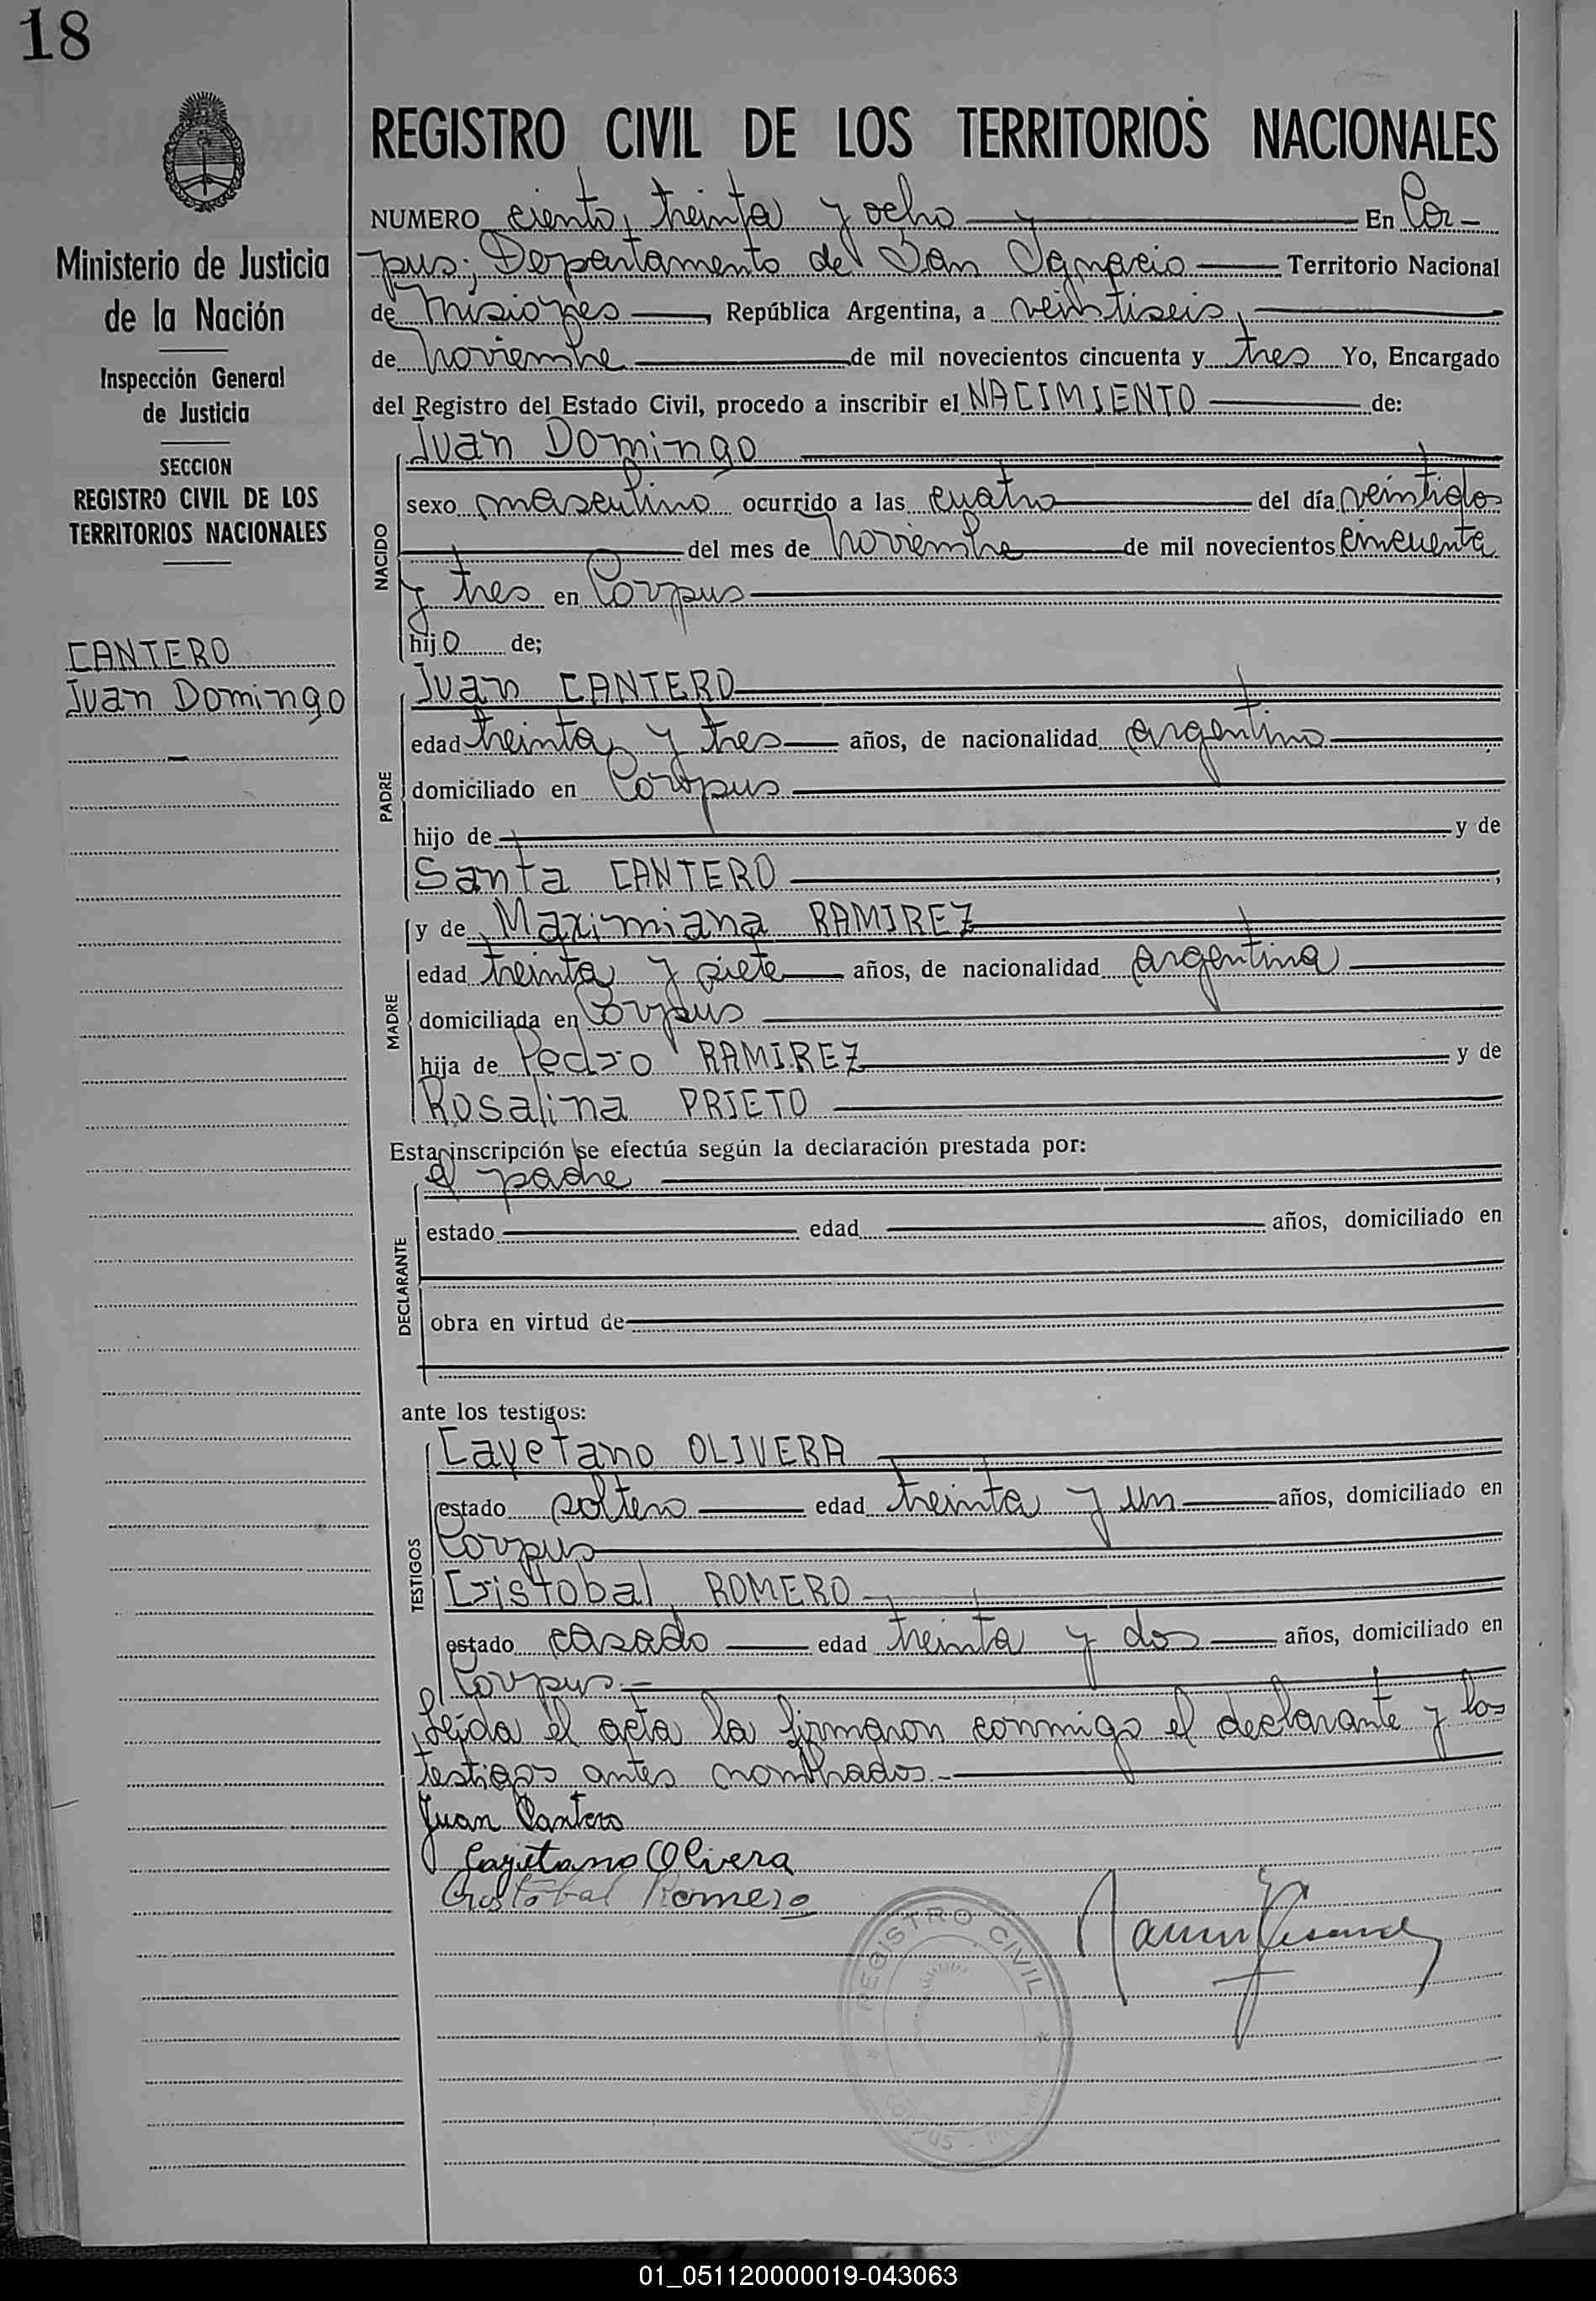 18
REGISTRO CIVIL DE LOS TERRITORIOS NACIONALES
Ministerio de Justicia
de la Nación
Inspección General
de Justicia
SECCION
REGISTRO CIVIL DE LOS
TERRITORIOS NACIONALES
CANTERO
Juan Domingo
NUMERO ciento treinta y ocho En Cor-
pus; Departamento de San Ignacio Territorio Nacional
de Misiones, República Argentina, a veintiseis
de noviembre de mil novecientos cincuenta y tres Yo, Encargado
del Registro del Estado Civil, procedo a inscribir el NACIMIENTO de:
NACIDO
Juan Domingo
sexo masculino ocurrido a las cuatro del día veintidos
del mes de noviembre de mil novecientos cincuenta
y tres en Corpus
hijo de;
PADRE
Juan CANTERO
edad treinta y tres años, de nacionalidad argentino
domiciliado en Corpus
hijo de y de
Santa CANTERO
MADRE
y de Maximiana RAMIREZ
edad treinta y siete años, de nacionalidad argentina
domiciliada en Corpus
hija de Pedro RAMIREZ y de
Rosalina PRIETO
Esta inscripción se efectúa según la declaración prestada por:
DECLARANTE
el padre
estado edad años, domiciliado en
obra en virtud de
ante los testigos:
TESTIGOS
Cayetano OLIVERA
estado soltero edad treinta y un años, domiciliado en
Corpus
Cristobal ROMERO
estado casado edad treinta y dos años, domiciliado en
Corpus.-
Leida el acta la firmaron conmigo el declarante y los
testigos antes nombrados.-
Juan Cantero
Cayetano Olivera
Cristobal Romero
REGISTRO CIVIL
CORPUS
01_051120000019-043063